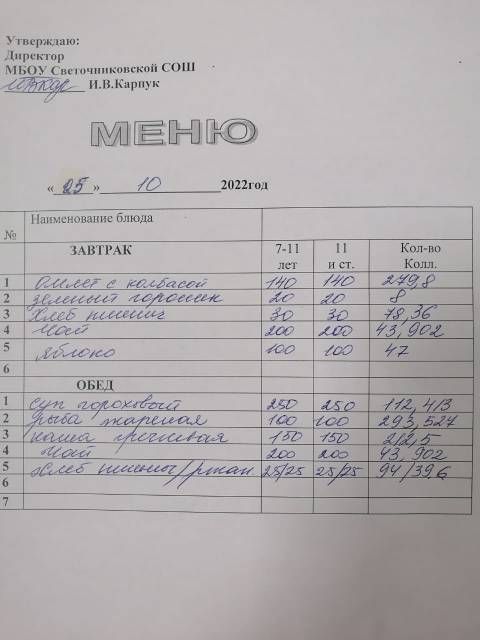 Утверждаю:
Директор
МБОУ Светочниковской СОШ
И.В.Карпук
МЕНЮ
« 25 » 10 2022год
№ Наименование блюда
ЗАВТРАК 7-11 лет 11 и ст. Кол-во Колл.
1 Омлет с колбасой 140 140 279,8
2 зеленый горошек 20 20 8
3 Хлеб пшенич 30 30 78,36
4 Чай 200 200 43,902
5 яблоко 100 100 47
6
ОБЕД
1 суп гороховый 250 250 112,413
2 рыба жареная 100 100 293,527
3 каша гречневая 150 150 212,5
4 Чай 200 200 43,902
5 Хлеб пшенич/ржан 25/25 25/25 94/39,6
6
7